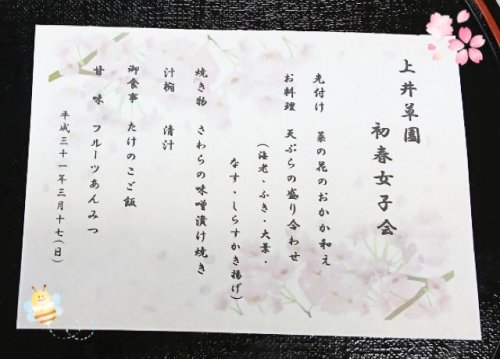 上井草園
初春女子会
先付け　菜の花のおかか和え
お料理　天ぷらの盛り合わせ
（海老・ふき・大葉・
なす・しらすかき揚げ）
焼き物　さわらの味噌漬け焼き
汁椀　清汁
御食事　たけのこご飯
甘味　フルーツあんみつ
平成三十一年三月十七（日）